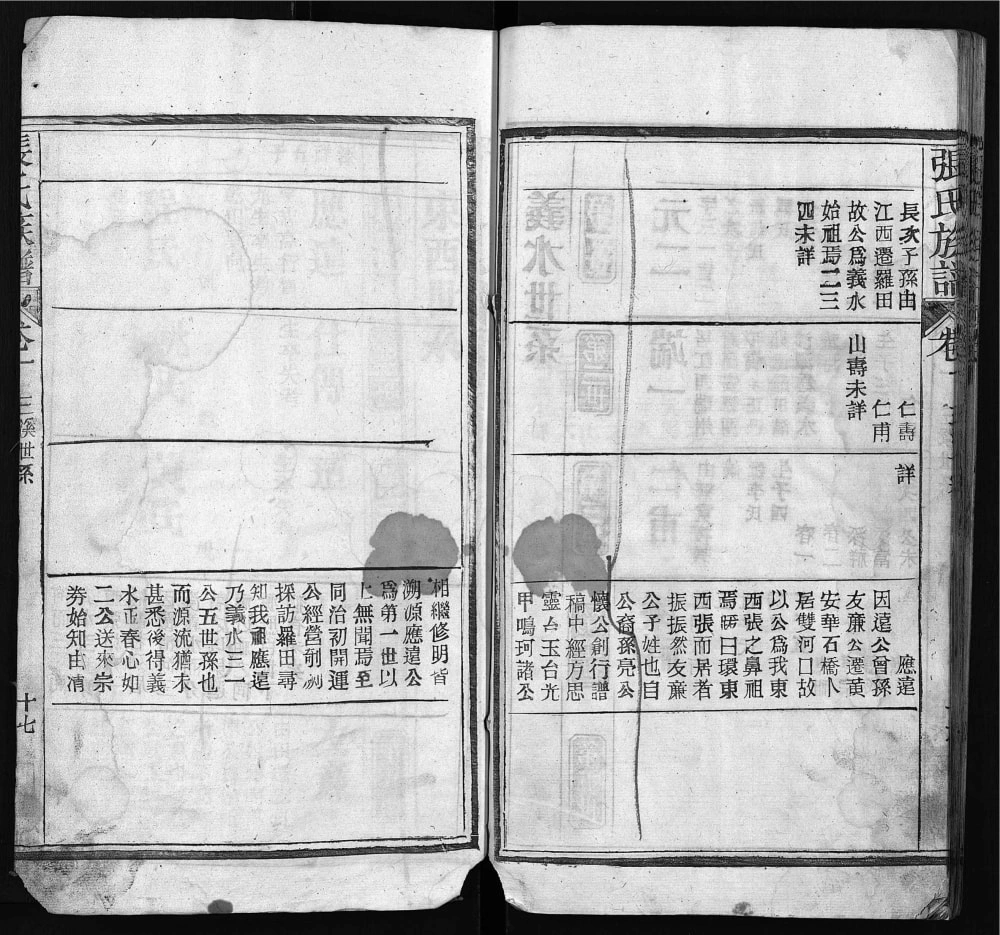 張氏族譜
卷一
長次子孫由
江西遷羅田
故公爲義水
始祖焉二三
四未詳
仁壽
仁甫
山壽未詳
詳
應遠
因遠公曾孫
友廉公遷黃
安華石橋卜
居雙河口故
以公爲我東
西張之鼻祖
焉時曰環東
西張而居者
振振然友廉
公子姓也自
公裔孫亮公
懷公創行譜
稿中經方思
靈台玉台光
甲鳴珂諸公
相繼修明皆
溯源應遠公
爲第一世以
上無聞焉至
同治初開運
公經營剞劂
採訪羅田尋
知我祖應遠
乃義水三一
公五世孫也
而源流猶未
甚悉後得義
水正春心如
二公送來宗
券始知由清
張氏族譜
卷一
世系
十七